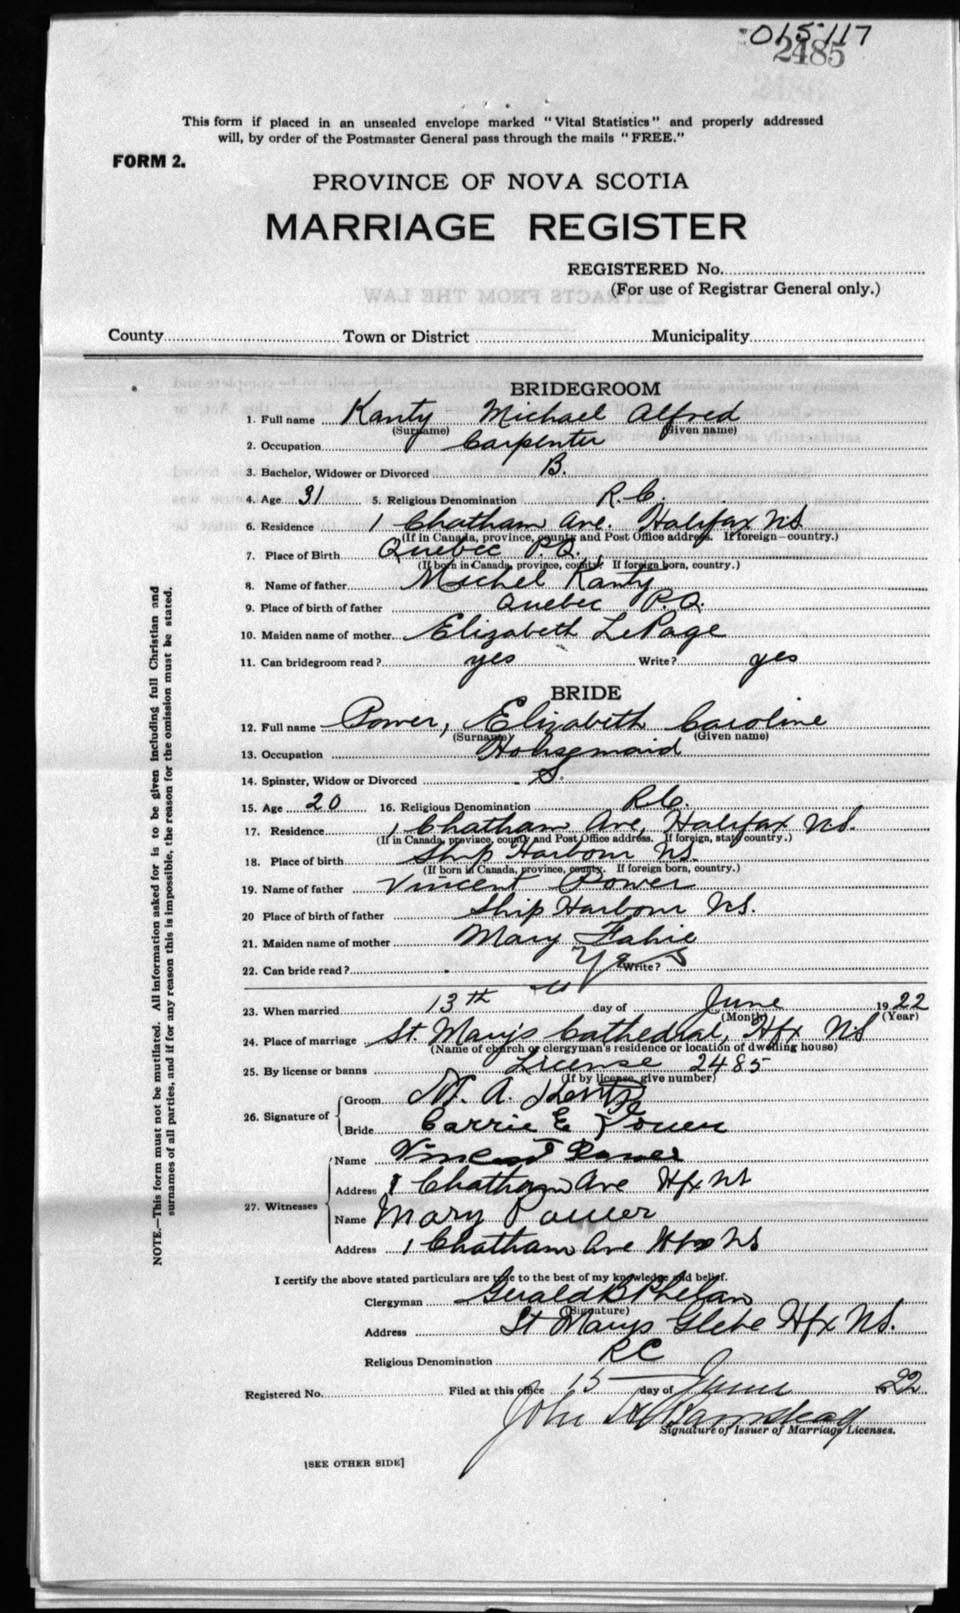 015117
2485
This form if placed in an unsealed envelope marked "Vital Statistics" and properly addressed
will, by order of the Postmaster General pass through the mails "FREE."
FORM 2.
PROVINCE OF NOVA SCOTIA
MARRIAGE REGISTER
REGISTERED No.
(For use of Registrar General only.)
County Town or District Municipality
BRIDEGROOM
1. Full name Kanty Michael Alfred
(Surname) (Given name)
2. Occupation Carpenter
3. Bachelor, Widower or Divorced B.
4. Age 31 5. Religious Denomination R.C.
6. Residence 1 Chatham Ave. Halifax NS
(If in Canada, province, county and Post Office address. If foreign—country.)
7. Place of Birth Quebec P.Q.
(If born in Canada, province, county. If foreign born, country.)
8. Name of father Michel Kanty
9. Place of birth of father Quebec P.Q.
10. Maiden name of mother Elizabeth LePage
11. Can bridegroom read? yes Write? yes
BRIDE
12. Full name Power, Elizabeth Caroline
(Surname) (Given name)
13. Occupation Housemaid
14. Spinster, Widow or Divorced S.
15. Age 20 16. Religious Denomination R.C.
17. Residence 1 Chatham Ave, Halifax NS.
(If in Canada, province, county and Post Office address. If foreign, state country.)
18. Place of birth Ship Harbour NS.
(If born in Canada, province, county. If foreign born, country.)
19. Name of father Vincent Power
20 Place of birth of father Ship Harbour NS.
21. Maiden name of mother Mary Fahie
22. Can bride read? Yes Write?
23. When married 13th day of June 1922
(Month) (Year)
24. Place of marriage St. Mary's Cathedral, Hfx NS
(Name of church or clergyman's residence or location of dwelling house)
25. By license or banns License 2485
(If by license, give number)
26. Signature of Groom M. A.
Bride Carrie E Power
27. Witnesses Name Vincent Power
Address 1 Chatham Ave Hfx NS
Name Mary Power
Address 1 Chatham Ave Hfx NS
I certify the above stated particulars are true to the best of my knowledge and belief.
Clergyman Gerald B Phelan
(Signature)
Address St Marys Glebe Hfx NS.
Religious Denomination RC
Registered No. Filed at this office 15 day of June 1922
John
Signature of Issuer of Marriage Licenses.
[SEE OTHER SIDE]
NOTE.—This form must not be mutilated. All information asked for is to be given including full Christian and
surnames of all parties, and if for any reason this is impossible, the reason for the omission must be stated.